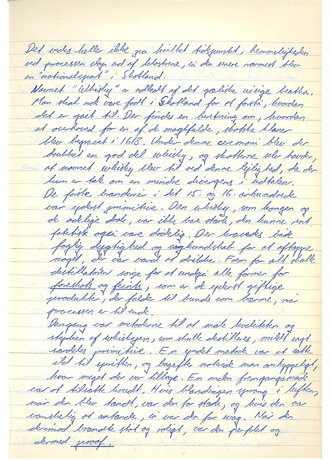 Det vides heller ikke på hvilket tidspunkt, hemmeligheden
ved processen slap ud af klostrene, en da være nærmest blev
en "nationalsport" i Skotland.
Navnet "Whisky" er udledt af det galiske uisige beatha.
Man skal nok være født i Skotland for at forstå, hvordan
det er gået til. Der findes en beretning om, hvordan
et overhoved for en af de magtfulde, skotske klaner
blev begravet i 1618. Under denne ceremoni blev der
drukket en god del whisky, og skotterne selv hævder,
at navnet whisky blev til ved denne lejlighed, da der
kun er tale om en mindre divergens i udtalen.
De første brænderier i det 15. og 16. århundrede
var yderst primitive. Den whisky, som kongen og
de adelige drak, var ikke bare stærk, den kunne rent
faktisk også være dødelig. Der krævedes både
faglig dygtighed og sagkundskab for at eftergøre
noget, der var værd at drikke. Frem for alt skulle
distillatører sørge for at undgå alle former for
foreshots og feints, som er de yderst giftige
produkter, der falder til bunds som bærme, når
processen er til ende.
Dengang var metoderne til at måle kvaliteten og
styrken af whiskyen, som skulle destilleres, mildt sagt
særdeles primitive. En yndet metode var at sætte
ild til spritten, og bagefter noterede man omhyggeligt,
hvor meget der var tilbage. En anden fremgangsmåde
var at tilsætte krudt. Hvis blandingen sprang i luften,
når den blev tændt, var den for stærk, og hvis den var
vanskelig at antænde, så var den for svag. Når den
derimod brændte stot og roligt, var den perfekt og
dermed proof.